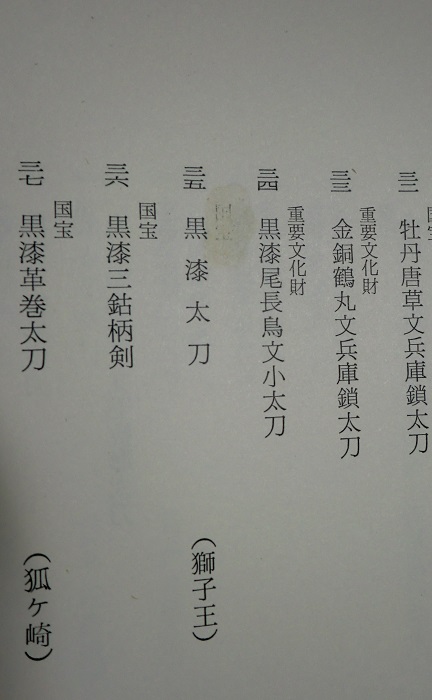 三二 牡丹唐草文兵庫鎖太刀
重要文化財
三三 金銅鶴丸文兵庫鎖太刀
重要文化財
三四 黒漆尾長鳥文小太刀
三五 黒漆太刀 (獅子王)
国宝
三六 黒漆三鈷柄剣
国宝
三七 黒漆革巻太刀 (狐ヶ崎)